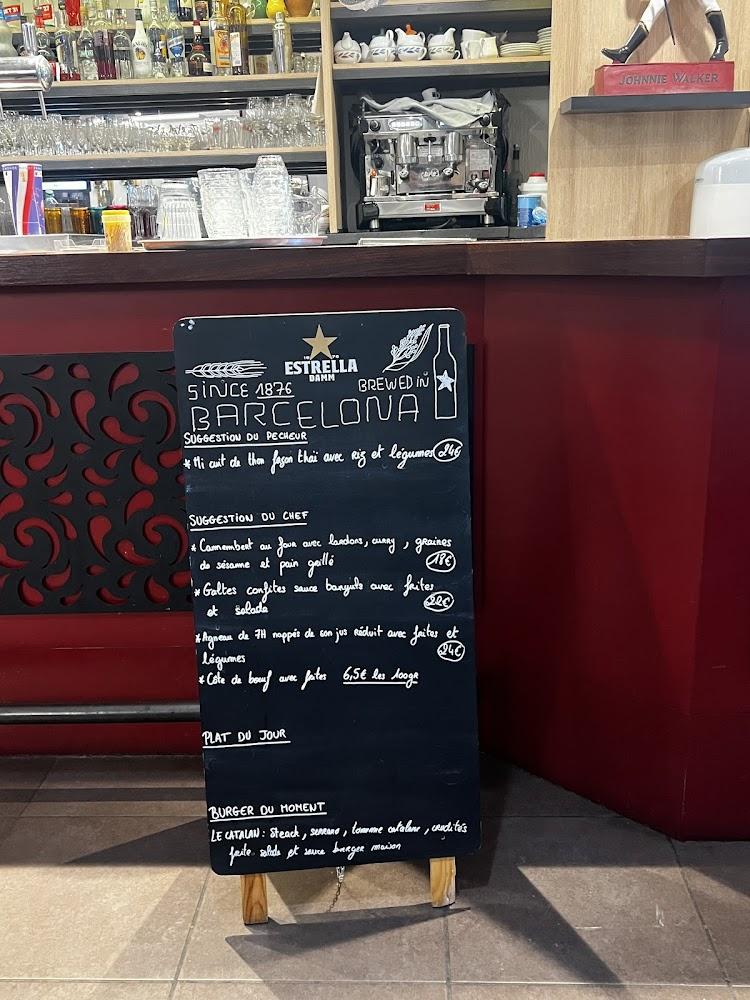 JOHNNIE WALKER
1876
ESTRELLA
DAMM
SINCE 1876 BREWED IN
BARCELONA
SUGGESTION DU PECHEUR
* Mi cuit de thon façon thaï avec riz et légumes 24€
SUGGESTION DU CHEF
* Camembert au four avec lardons, curry, graines
de sésame et pain grillé 18€
* Galtes confites sauce banyuls avec frites
et salade 22€
* Agneau de 7H nappés de son jus réduit avec frites et
légumes 24€
* Côte de bœuf avec frites 6,5€ les 100gr
PLAT DU JOUR
BURGER DU MOMENT
LE CATALAN: Steack, serrano, tomme catalane, crudités
frite salade et sauce burger maison